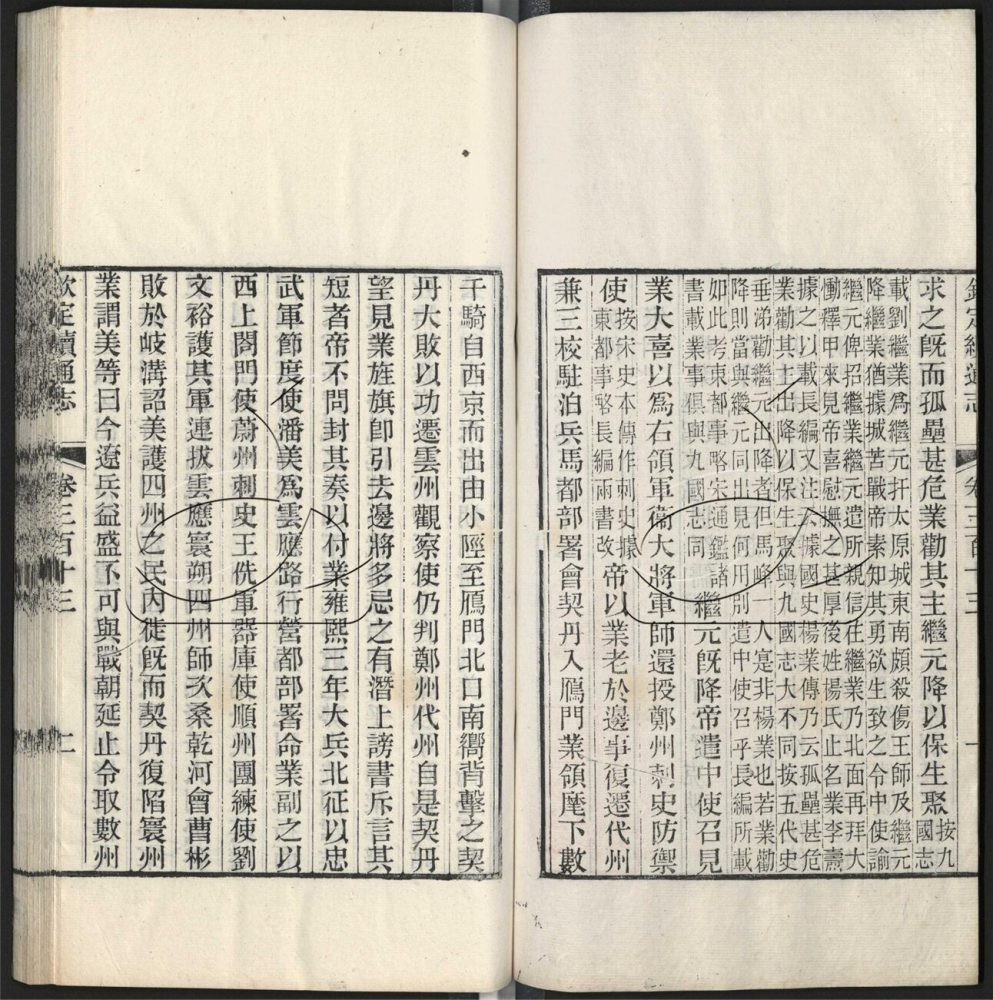 求之既而孤壘甚危業勸其主繼元降以保生聚按九國志
載劉繼業爲繼元扞太原城東南頗殺傷王師及繼元
降繼業猶據城苦戰帝素知其勇欲生致之令中使諭
繼元俾招繼業繼元遣所親信往繼業乃北面再拜大
慟釋甲來見帝喜慰撫之甚厚後姓楊氏止名業李燾
據之以載長編又注云據國史楊業傳乃云孤壘甚危
業勸其主出降以保生聚與九國志大不同按五代史
垂涕勸繼元出降者但馬峰一人寔非楊業也若業勸
降則當與繼元同出見何用別遣中使召乎長編所載
如此考東都事略宋通鑑諸
書載業事俱與九國志同
繼元既降帝遣中使召見
業大喜以爲右領軍衛大將軍師還授鄭州刺史防禦
使按宋史本傳作刺史據東都事略長編兩書改帝以業老於邊事復遷代州
兼三校駐泊兵馬都部署會契丹入鴈門業領麾下數
千騎自西京而出由小陘至鴈門北口南嚮背擊之契
丹大敗以功遷雲州觀察使仍判鄭州代州自是契丹
望見業旌旗卽引去邊將多忌之有潛上謗書斥言其
短者帝不問封其奏以付業雍熙三年大兵北征以忠
武軍節度使潘美爲雲應路行營都部署命業副之以
西上閤門使蔚州刺史王侁軍器庫使順州團練使劉
文裕護其軍連拔雲應寰朔四州師次桑乾河會曹彬
敗於岐溝詔美護四州之民內徙既而契丹復陷寰州
業謂美等曰今遼兵益盛不可與戰朝廷止令取數州
欽定續通志 卷三百十三 二